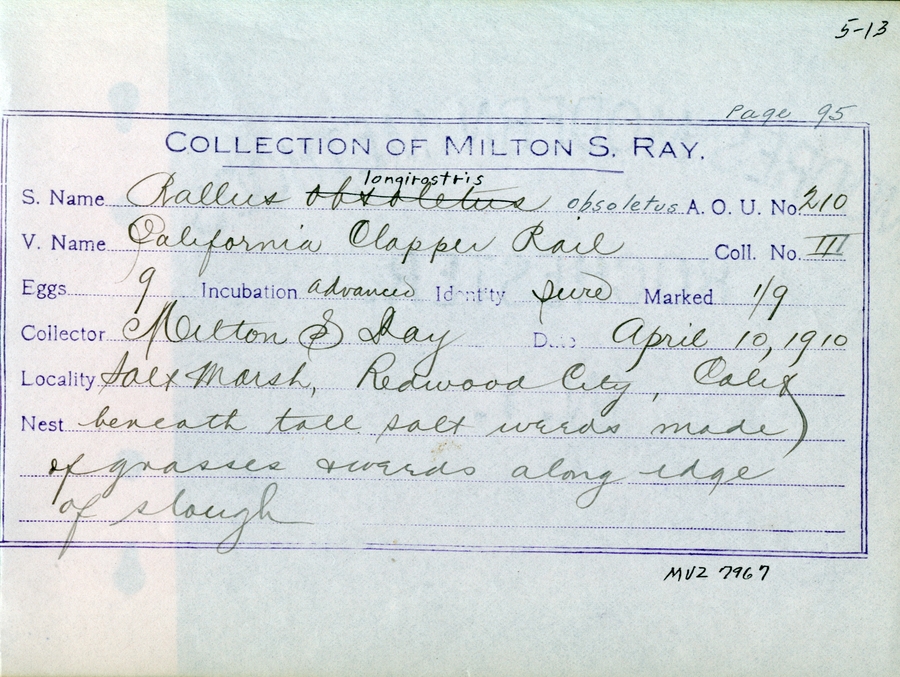 5-13
Page 95
COLLECTION OF MILTON S. RAY.
longirostris
S. Name Rallus obsoletus obsoletus A. O. U. No. 210
V. Name California Clapper Rail Coll. No. III
Eggs 9 Incubation advanced Identity sure Marked 1/9
Collector Milton S Ray Date April 10, 1910
Locality Salt Marsh, Redwood City, Calif
Nest beneath tall salt weeds made
of grasses & weeds along edge
of slough
MVZ 7967